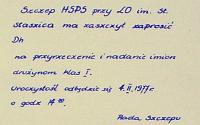 Szczep HSPS przy LO im. St.
Staszica ma zaszczyt zaprosić
Dh
na przyrzeczenie i nadanie imion
drużynom klas I.
Uroczystość odbędzie się 4.II.1977r
o godz 14⁰⁰.
Rada Szczepu